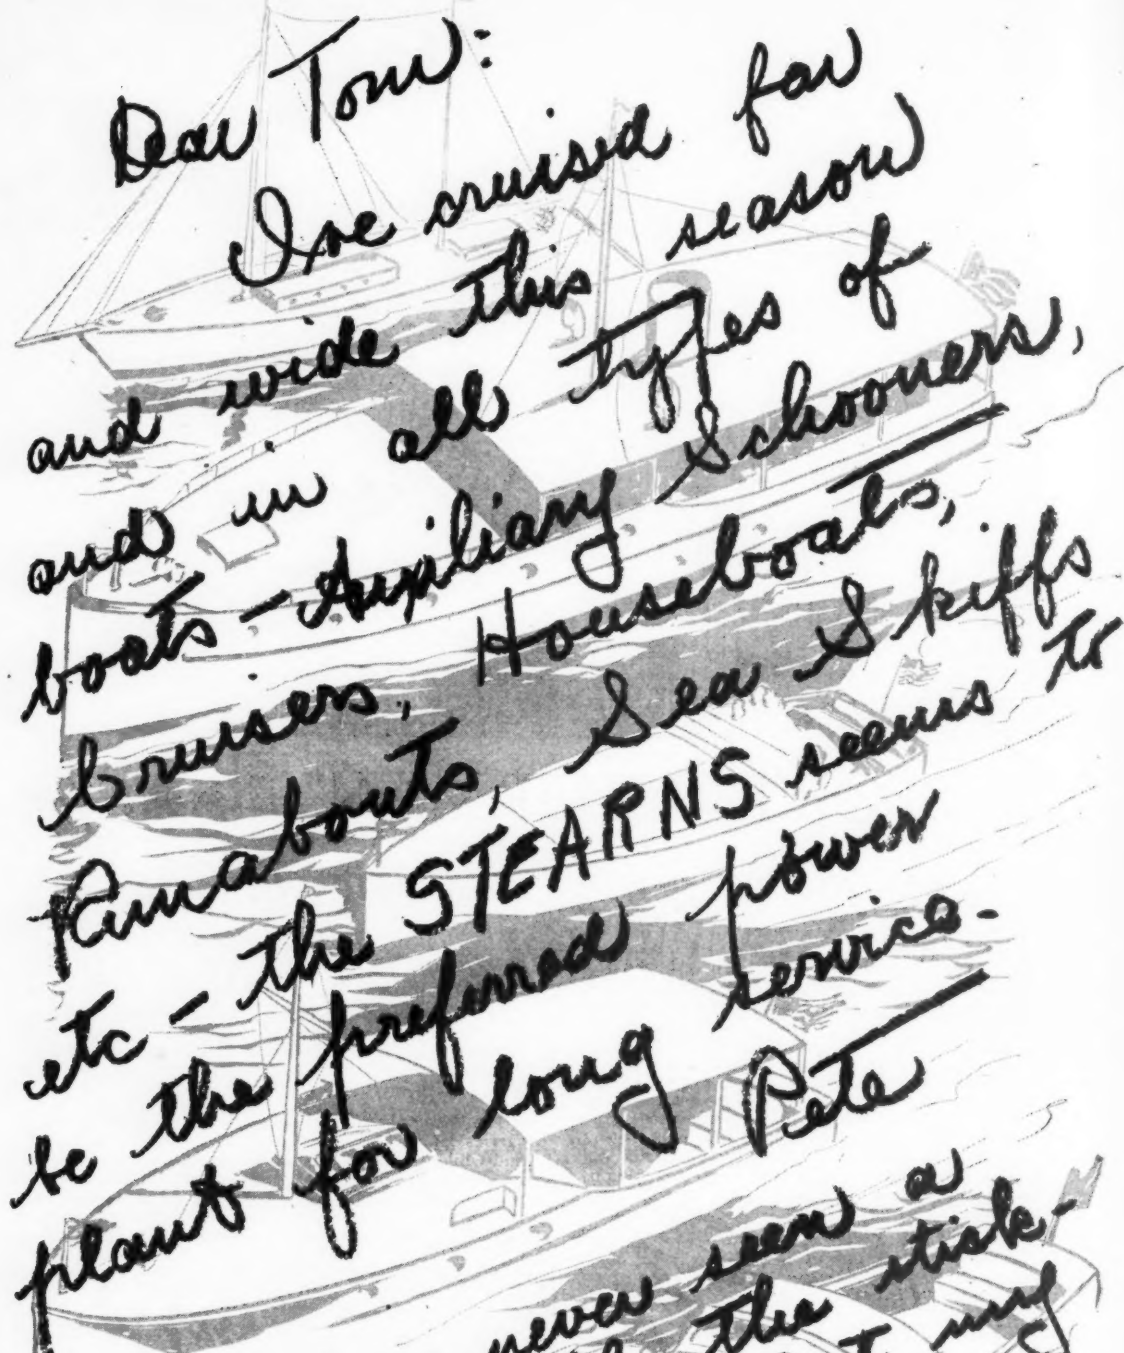 Dear Tom:
I've cruised far
and wide this season
and in all types of
boats - Auxiliary Schooners,
Cruisers, Houseboats,
Runabouts, Sea Skiffs
etc - the STEARNS seems to
be the preferred power
plant for long service -
Pete
never seen a
the stick-
my